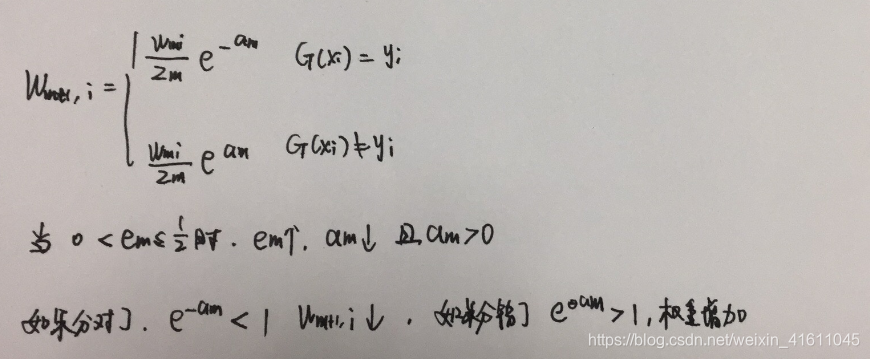 Wm+1,i = { Wmi/Zm e^-αm G(xi) = yi
Wmi/Zm e^αm G(xi) ≠ yi
当 0 < em ≤ 1/2 时. em↑. αm↓ 且 αm>0
如果分对了. e^-αm < 1 Wm+1,i ↓ . 如果分错了 e^αm > 1, 权重增加
https://blog.csdn.net/weixin_41611045